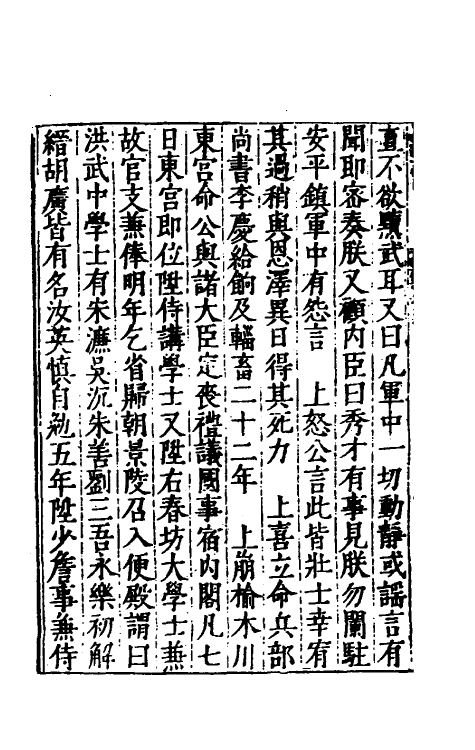 直不欲黷武耳又曰凡軍中一切動靜或謡言有
聞即審奏朕又顧内臣曰秀才有事見朕勿闌駐
安平鎮軍中有怨言　上怒公言此皆壯士幸宥
其過稍與恩澤異日得其死力　上喜立命兵部
尚書李慶給餉及輜畜二十二年　上崩榆木川
東宮命公與諸大臣定喪禮議國事宿内閣凡七
日東宮即位陞侍講學士又陞右春坊大學士兼
故官支兼俸明年乞省歸朝景陵召入便殿謂曰
洪武中學士有朱濂吳沉朱善劉三吾永樂初解
縉胡廣皆有名汝英慎自勉五年陞少詹事兼侍